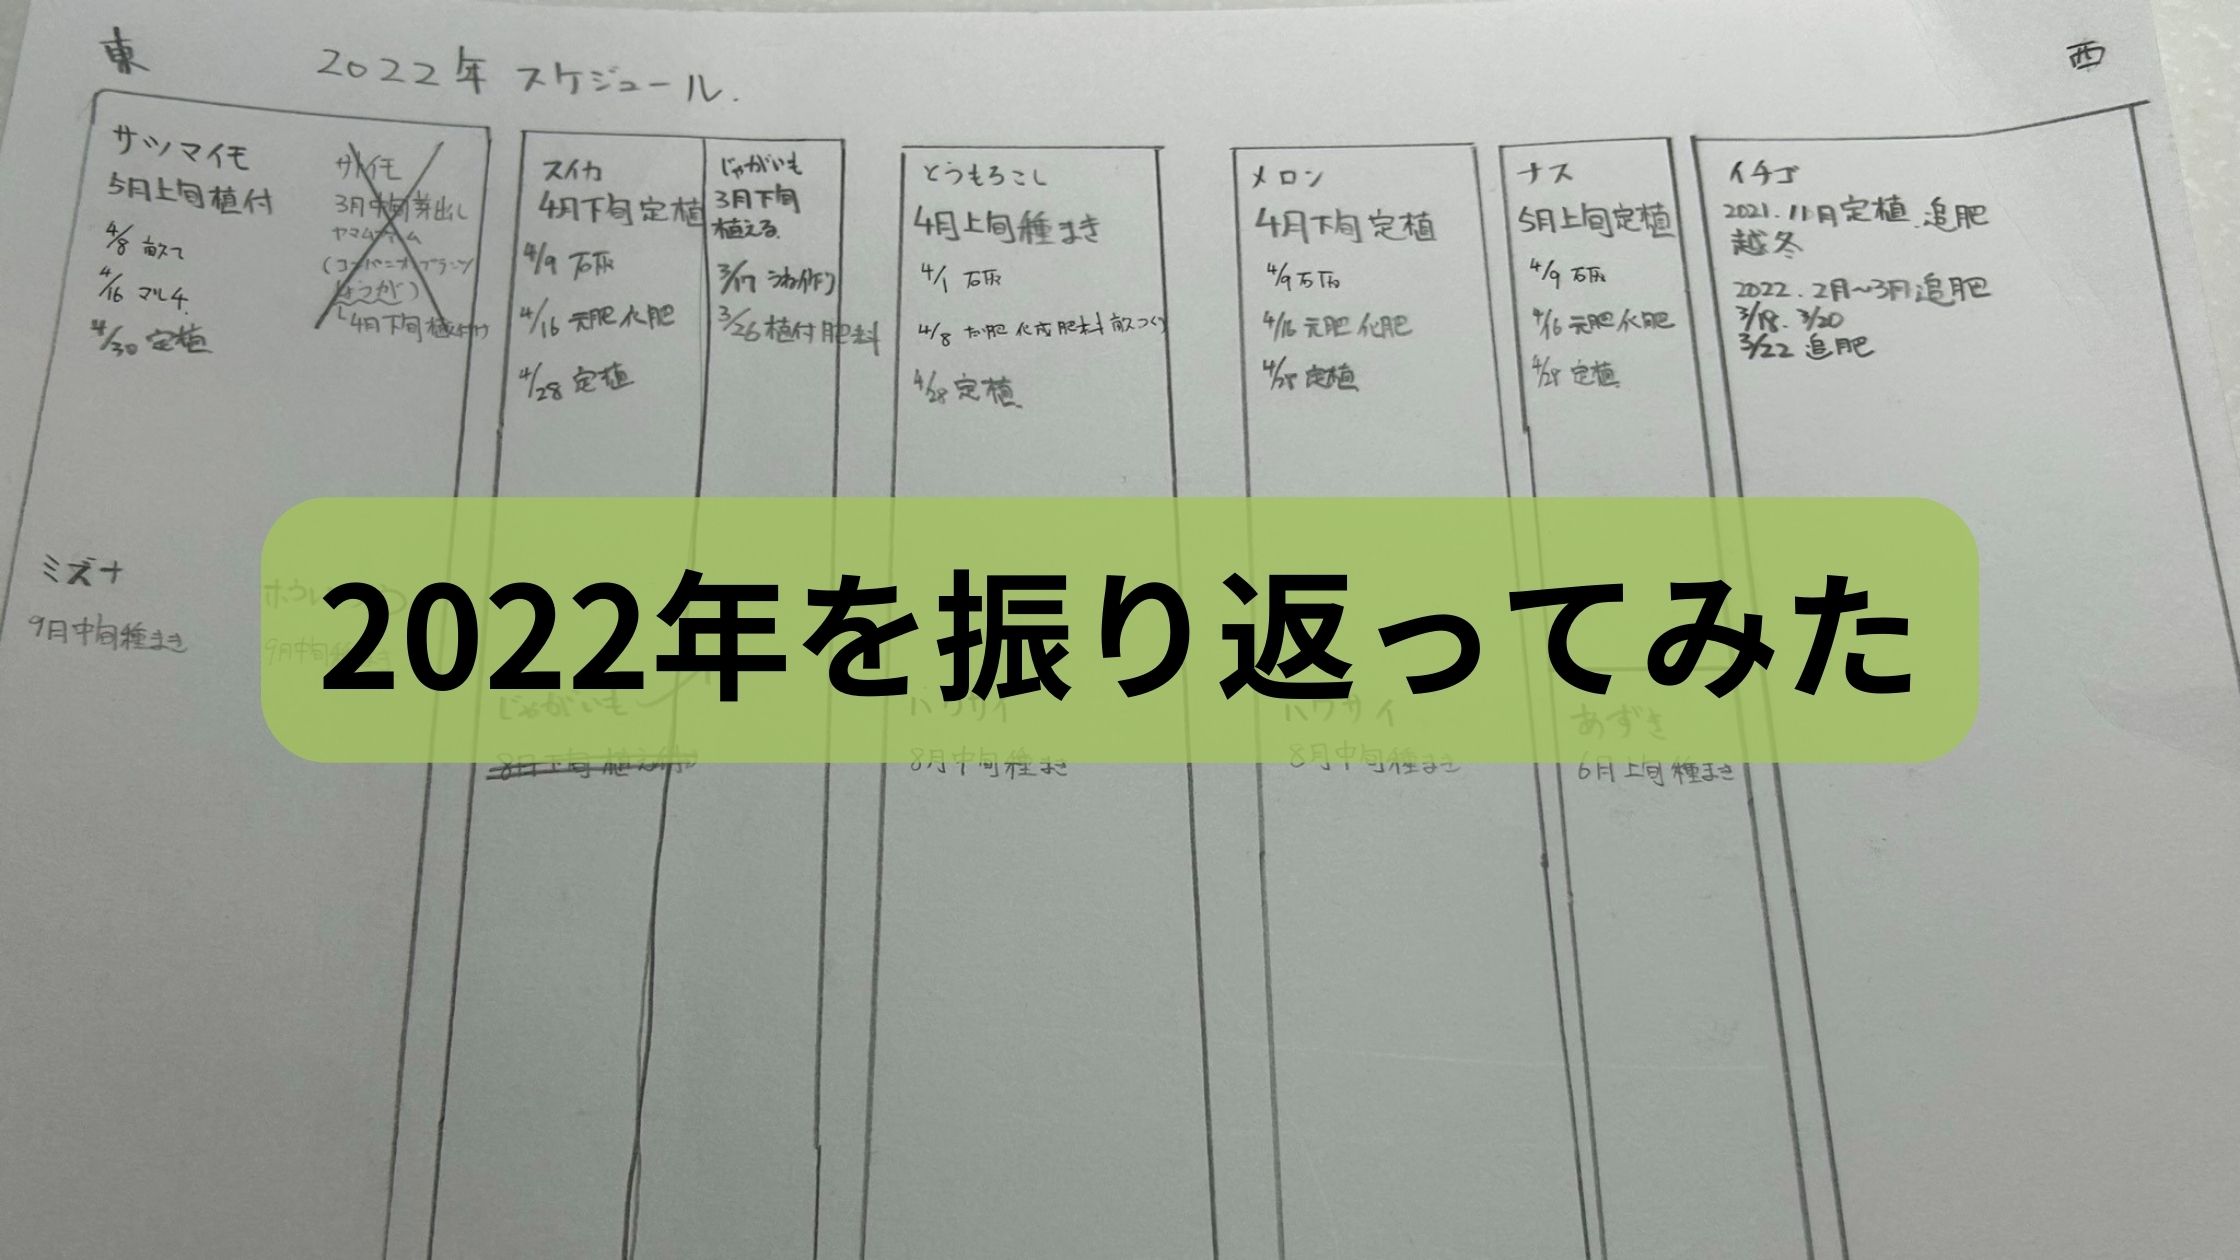 東
2022年 スケジュール.
西
サツマイモ
5月上旬植付
4/8 畝立て
4/16 マルチ
4/30 定植
サトイモ
3月中旬芽出し
4月下旬植え付け
スイカ
4月下旬定植
4/9 石灰
4/16 元肥化肥
4/28 定植
じゃがいも
3月下旬
植える
3/17 うね作り
3/26 植付肥料
とうもろこし
4月上旬種まき
4/1 石灰
4/8 たい肥 化成肥料 畝つくり
4/28 定植
メロン
4月下旬 定植
4/9 石灰
4/16 元肥 化肥
4/28 定植
ナス
5月上旬定植
4/9 石灰
4/16 元肥化肥
4/28 定植
イチゴ
2021.11月定植.追肥
越冬
2022.2月~3月追肥
3/18.3/20
3/22 追肥
ミズナ
9月中旬種まき
2022年を振り返ってみた
9月中旬種まき
じゃがいも
8月下旬 植え付け
ハクサイ
8月中旬種まき
ハクサイ
8月中旬種まき
あずき
6月上旬種まき